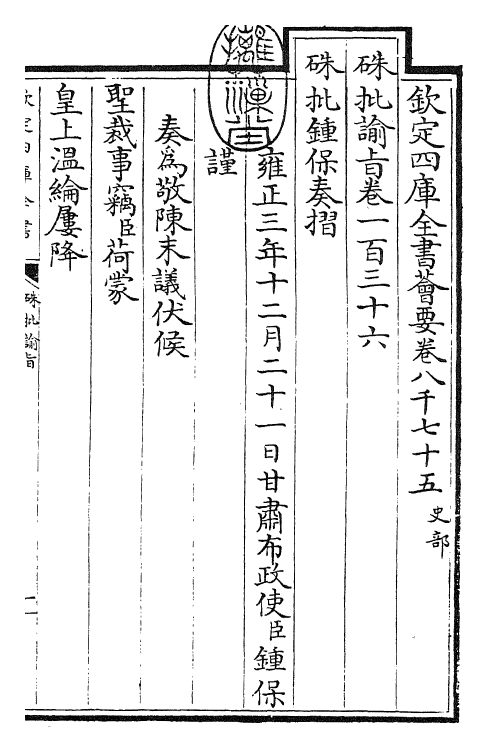 欽定四庫全書薈要卷八千七十五 史部
硃批諭旨卷一百三十六
硃批鍾保奏摺
雍正三年十二月二十一日甘肅布政使臣鍾保
謹
奏為敬陳末議伏候
聖裁事竊臣荷蒙
皇上溫綸屢降
欽定四庫全書
硃批諭旨
一